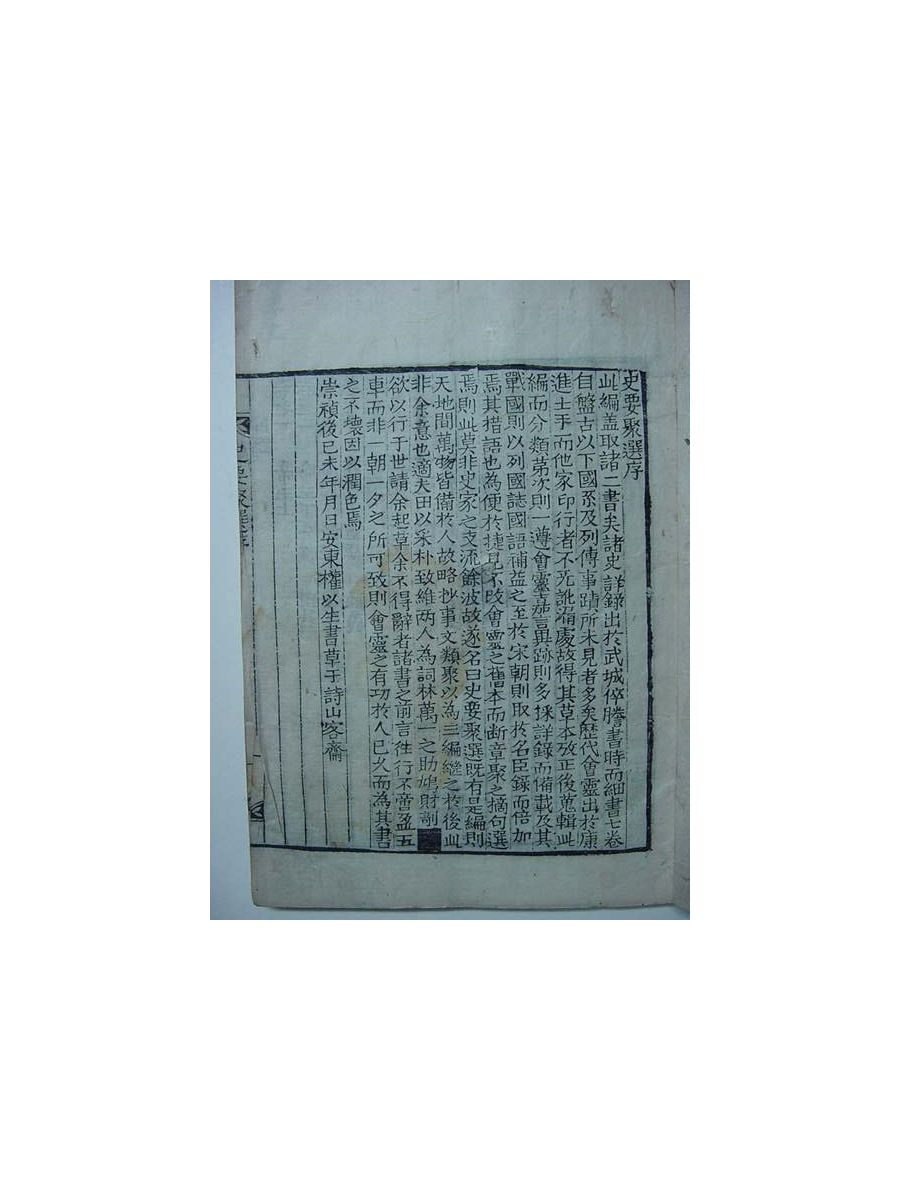 史要聚選序
此編盖取諸二書矣諸史詳錄出於武城倅謄書時而細書七卷
自盤古以下國系及列傳事蹟所未見者多矣歷代會靈出於康
進士手而他家印行者不無訛漏處故得其草本攷正後蒐輯此
編而分類第次則一遵會靈嘉言異跡則多採詳錄而備載及其
戰國則以列國誌國語補益之至於宋朝則取於名臣錄而倍加
焉其措語也為便於捷見不改會靈之舊本而断章聚之摘句選
焉則此莫非史家之支流餘波故遂名曰史要聚選既有是編則
天地間萬物皆備於人故略抄事文類聚以為三編繼之於後此
非余意也適夫田以采朴致維两人為詞林萬一之助鳩財剞
欲以行于世請余起草余不得辭者諸書之前言徃行不啻盈五
車而非一朝一夕之所可致則會靈之有功於人已久而為其書
之不壞因以潤色焉
崇禎後己未年月日安東權以生書草于詩山客齋
史要聚選序